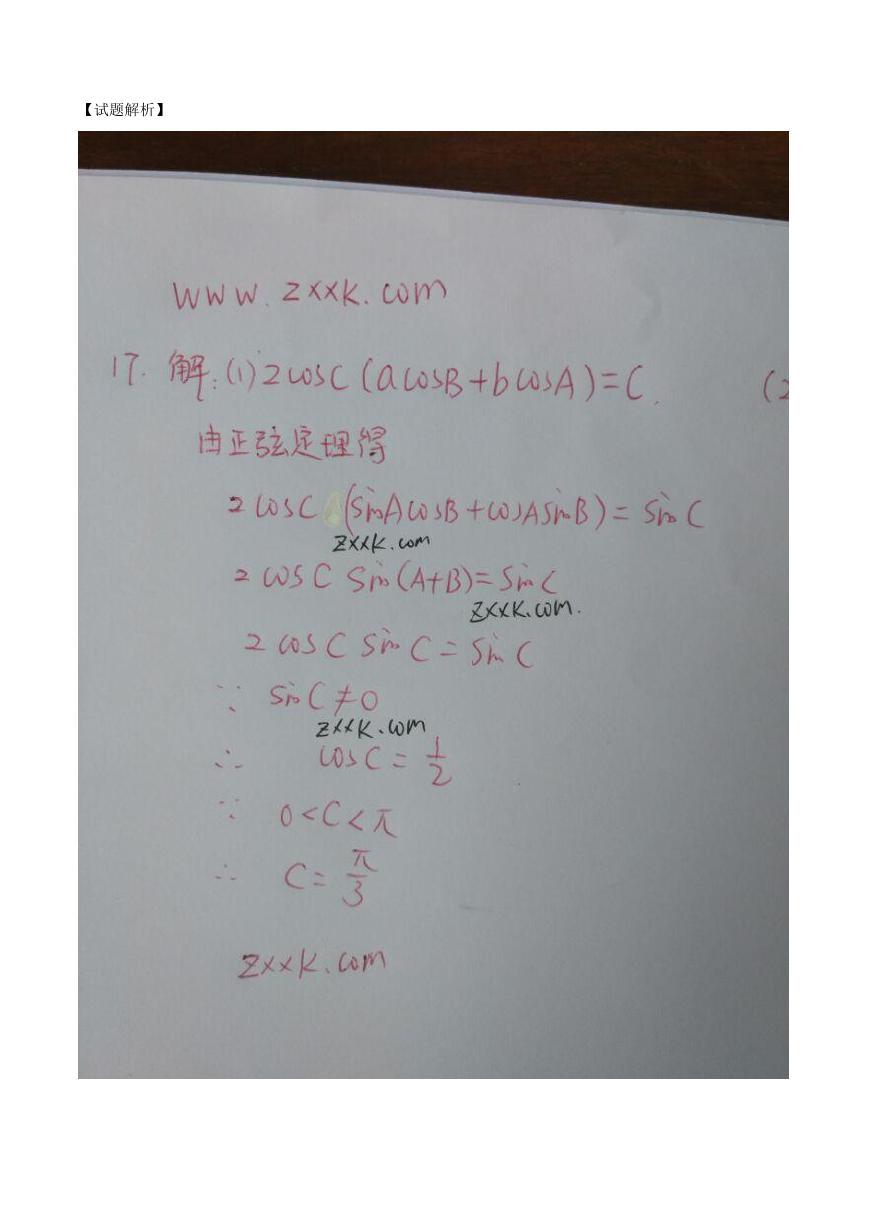 【试题解析】
www.zxxk.com
17. 解:(1) 2cosC(acosB+bcosA)=C. (2
由正弦定理得
2cosC(sinAcosB+cosAsinB)=sinC
zxxk.com
2cosC sin(A+B)=sinC
zxxk.com.
2cosC sinC=sinC
∵ sinC≠0
zxxk.com
∴ cosC=1/2
∵ 0<C<π
∴ C=π/3
zxxk.com